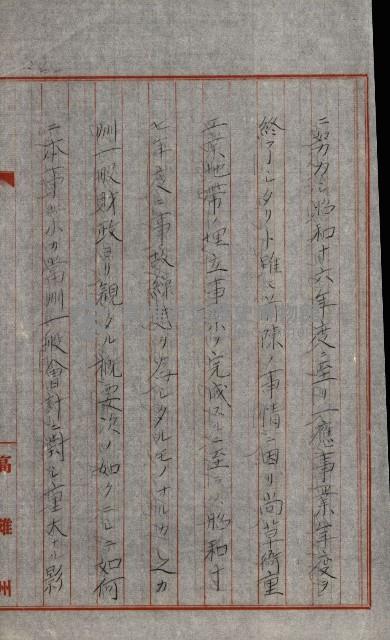 ニ努力シ昭和十六年度ニ至リ一應事業年度ヲ
終了シタリト雖モ前陳ノ事情ニ因リ尚草衙重
工業地帶ノ埋立事業ヲ完成スルニ至ラズ昭和十
七年度ニ事故繰越ヲ為シタルモノナルカ之カ
州一般財政ヨリ観タル概要次ノ如クニシテ如何
ニ本事業カ當州一般會計ニ對シ重大ナル影
高雄州